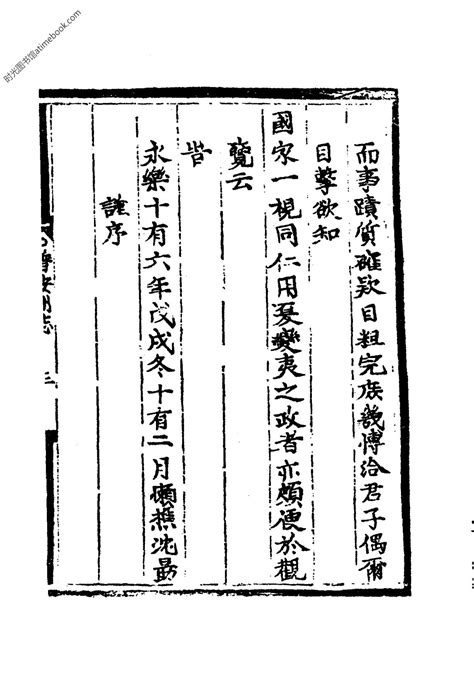 时光图书馆atimebook.com
而事蹟質確欵目粗完族幾愽洽君子偶爾
目擊欲知
國家一視同仁用夏變夷之政者亦頗便於觀
覽云
旹
永樂十有六年戊戌冬十有二月嬾樵沈勗
謹序
普安州志 三